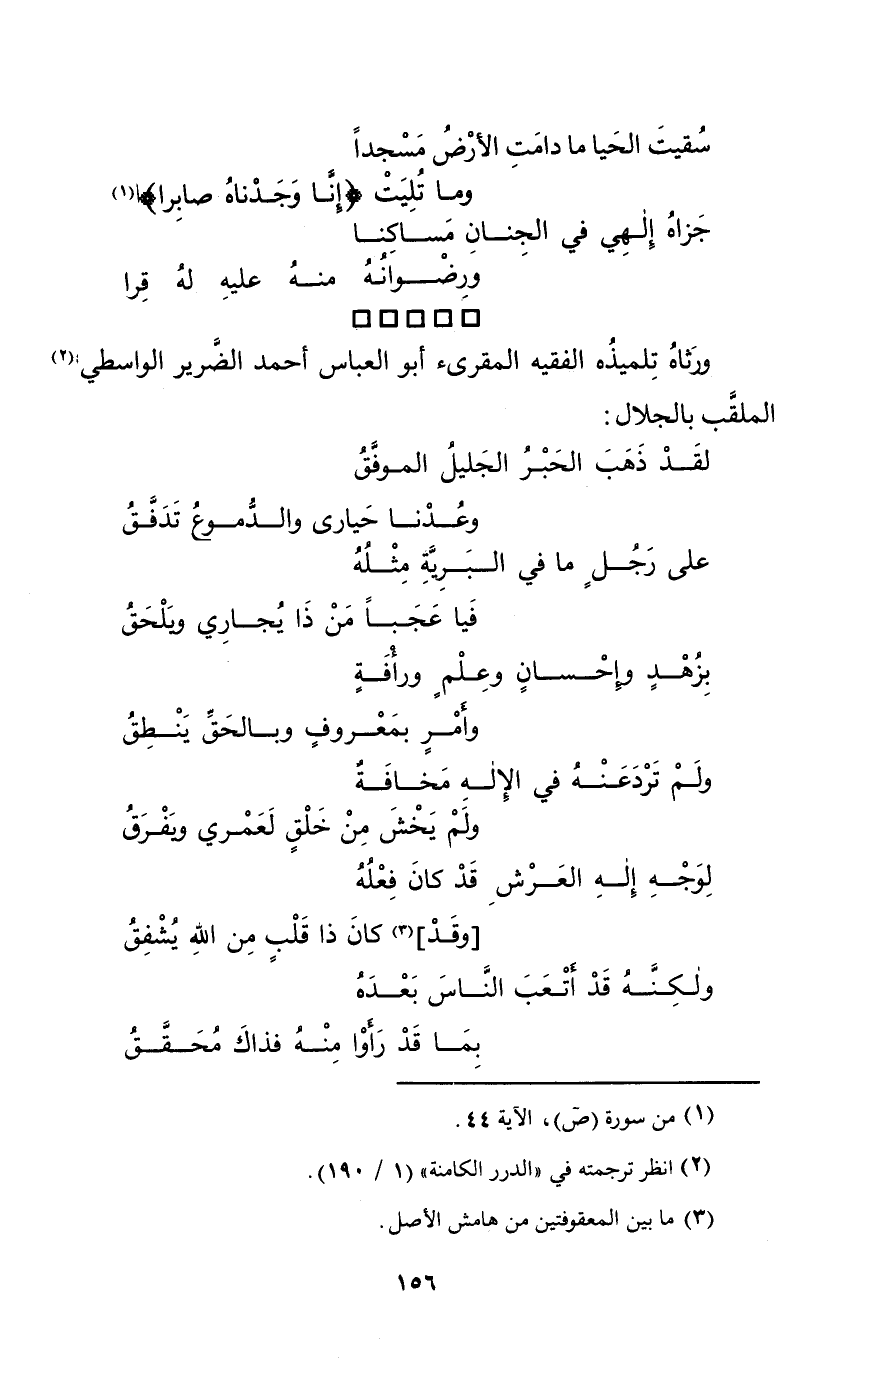 سُقيتَ الحَيا ما دامَتِ الأرْضُ مَسْجداً
وما تُلِيَتْ ﴿إنَّا وَجَدْناهُ صابِرا﴾(١)
جَزاهُ إلٰهِي في الجِنانِ مَساكِنا
ورِضْوانُهُ منهُ عليهِ لهُ قِرا
□□□□□
ورَثاهُ تِلميذُه الفقيه المقرىء أبو العباس أحمد الضَّرير الواسطي(٢)،
الملقَّب بالجلال:
لقَدْ ذَهَبَ الحَبْرُ الجَليلُ الموفَّقُ
وعُدْنا حَيارى والدُّموعُ تَدَفَّقُ
على رَجُلٍ ما في البَرِيَّةِ مِثْلُهُ
فَيا عَجَباً مَنْ ذَا يُجارِي ويَلْحَقُ
بِزُهْدٍ وإحْسانٍ وعِلْمٍ ورأْفَةٍ
وأَمْرٍ بمَعْروفٍ وبالحَقِّ يَنْطِقُ
ولَمْ تَرْدَعَنْهُ في الإلٰهِ مَخافَةٌ
ولَمْ يَخْشَ مِنْ خَلْقٍ لَعَمْري ويَفْرَقُ
لِوَجْهِ إلٰهِ العَرْشِ قَدْ كانَ فِعْلُهُ
[وقَدْ](٣) كانَ ذا قَلْبٍ مِن اللهِ يُشْفِقُ
ولٰكِنَّهُ قَدْ أَتْعَبَ النَّاسَ بَعْدَهُ
بِمَا قَدْ رَأَوْا مِنْهُ فذاكَ مُحَقَّقُ
(١) من سورة (صٓ)، الآية ٤٤.
(٢) انظر ترجمته في «الدرر الكامنة» (١ / ١٩٠).
(٣) ما بين المعقوفتين من هامش الأصل.
١٥٦